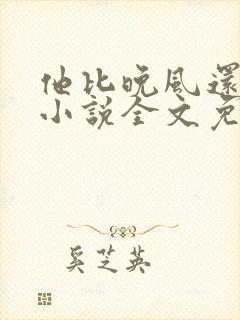 他比晚风還
小說全文免
奚芝英